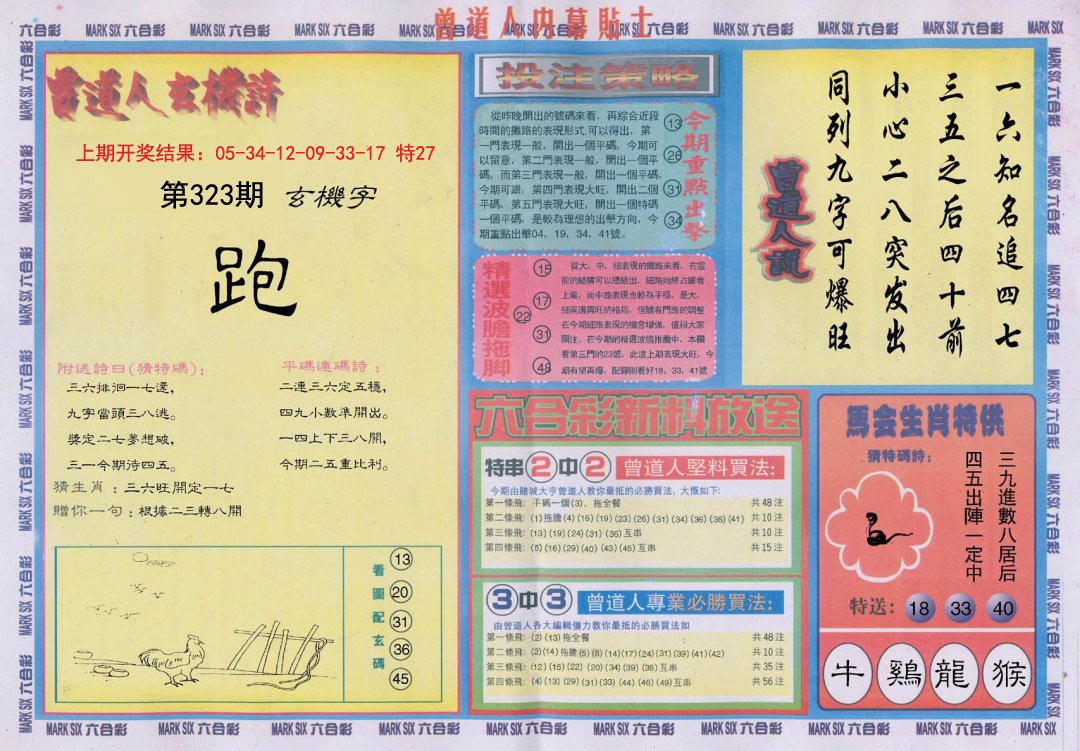 曾道人内幕貼士
六合彩 MARK SIX 六合彩 MARK SIX 六合彩 MARK SIX 六合彩 MARK SIX 六合彩 MARK SIX 六合彩 MARK SIX 六合彩 MARK SIX 六合彩 MARK SIX 六合彩 MARK SIX
曾道人玄機詩
上期开奖结果：05-34-12-09-33-17 特27
第323期 玄機字
跑
附送詩曰(猜特碼)：
三六排徊一七達，
九字當頭三八逃。
獎定二七夢想破，
三一今期待四五。
平碼連碼詩：
二連三六定五穩，
四九小數準開出。
一四上下三八開，
今期二五重比利。
猜生肖：三六旺開定一七
贈你一句：根據二三轉八開
看圖配玄碼
13
20
31
36
45
投注策略
從昨晚開出的號碼來看，再綜合近段
時間的攤路的表現形式,可以得出，第
一門表現一般，開出一個平碼，今期可
以留意，第二門表現一般，開出一個平
碼，而第三門表現一般，開出一個平碼，
今期可跟，第四門表現大旺，開出二個
平碼，第五門表現大旺，開出一個特碼
一個平碼，是較為理想的出擊方向，今
期重點出擊04、19、34、41號。
13
26
31
34
今期重點出擊
精選波膽拖脚
15
17
22
31
48
從大、中、細表現的攤路來看，在當
前的結構可以總結出，細路始終占據着
上風，而中路表現也較為平穩，是大、
細兩邊興旺的格局，但隨着門路的調整
在今期細路表現的機會增強，值得大家
關注，在今期的精選波膽推薦中，本欄
看第三門的23號，此波上期表現大旺，今
期有望再爆，配腳則看好18、33、41號
曾道人說
一六知名追四七
三五之后四十前
小心二八突发出
同列九字可爆旺
六合彩新料放送
特串2中2 曾道人堅料買法:
今期由賭城大亨曾道人教你最抵的必勝買法，大慨如下:
第一條飛: 平碼一個(3)，拖全餐 共48注
第二條飛: (1)拖膽(4)(16)(19)(23)(26)(31)(34)(36)(36)(41) 共10注
第三條飛: (13)(19)(24)(31)(36)互串 共10注
第四條飛: (5)(16)(29)(40)(43)(45)互串 共15注
3中3 曾道人專業必勝買法:
由曾道人各大編輯僵力教你最抵的必勝買法如
第一條飛: (2)(13)拖全餐 共48注
第二條飛: (2)(14)拖膽(5)(8)(14)(17)(24)(31)(39)(41)(42) 共10注
第三條飛: (12)(15)(22)(20)(34)(39)(38)互串 共35注
第四條飛: (4)(13)(29)(31)(33)(44)(46)(49)互串 共56注
馬会生肖特供
猜特碼詩：
三九進數八居后
四五出陣一定中
特送：18 33 40
牛 鷄 龍 猴
MARK SIX 六合彩 MARK SIX 六合彩 MARK SIX 六合彩 MARK SIX 六合彩 MARK SIX 六合彩 MARK SIX 六合彩 MARK SIX 六合彩 MARK SIX 六合彩 MARK SIX 六合彩 MARK SIX